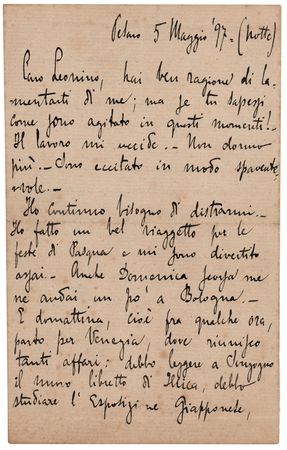 Pesaro 5 Maggio '97 - (Notte)
Caro Leonino, hai ben ragione di la-
mentarti di me; ma se tu sapessi
come sono agitato in questi momenti! -
Il lavoro mi uccide. - Non dormo
più. - Sono eccitato in modo spavente-
vole. -
Ho continuo bisogno di distrarmi. -
Ho fatto un bel viaggetto per le
feste di Pasqua e mi sono divertito
assai. - Anche Domenica scorsa me
ne andai un pò a Bologna. -
E domattina, cioè fra qualche ora,
parto per Venezia, dove riunisco
tanti affari: debbo leggere a Sonzogno
il nuovo libretto di Illica, debbo
studiare l'Esposizione Giapponese,